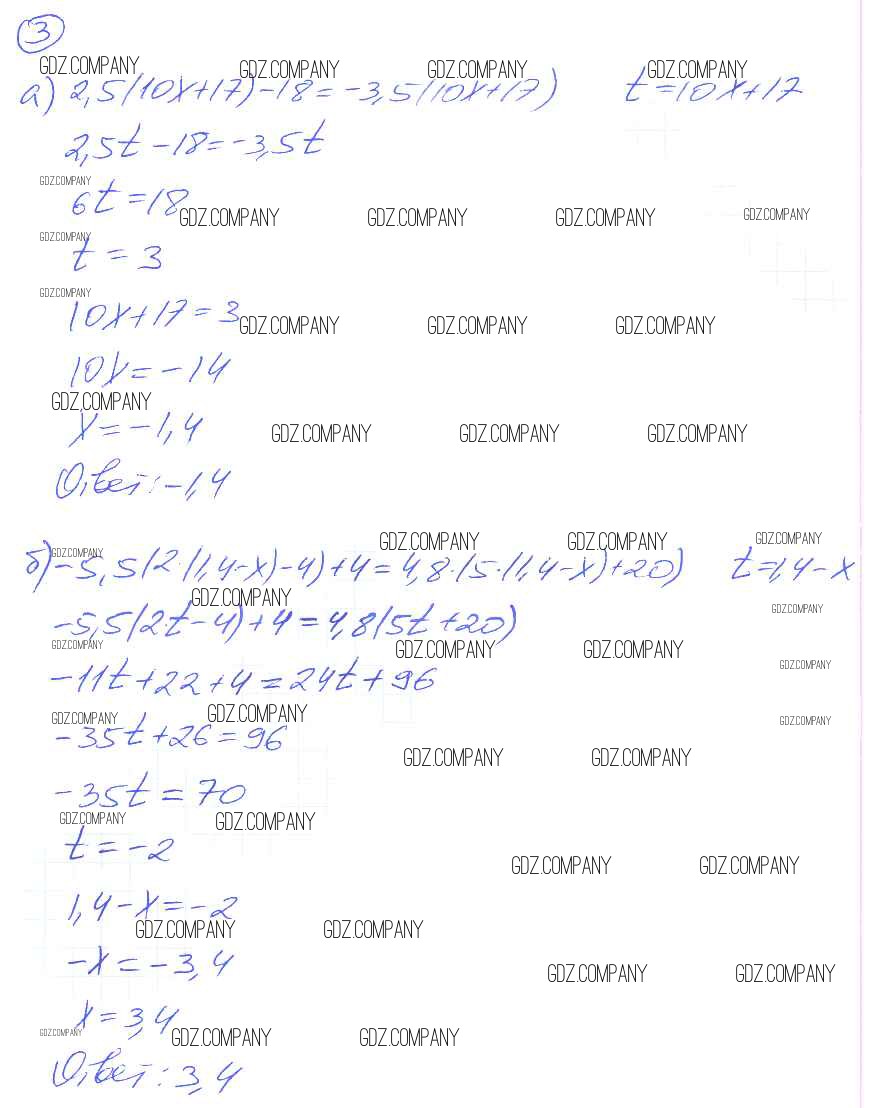 3
GDZ.COMPANY GDZ.COMPANY GDZ.COMPANY GDZ.COMPANY
а) 2,5(10x+17)-18=-3,5(10x+17) t=10x+17
2,5t-18=-3,5t
GDZ.COMPANY
6t=18
GDZ.COMPANY GDZ.COMPANY GDZ.COMPANY GDZ.COMPANY
GDZ.COMPANY
t=3
GDZ.COMPANY
10x+17=3
GDZ.COMPANY GDZ.COMPANY GDZ.COMPANY
10x=-14
GDZ.COMPANY
x=-1,4
GDZ.COMPANY GDZ.COMPANY GDZ.COMPANY
Ответ: -1,4
GDZ.COMPANY GDZ.COMPANY GDZ.COMPANY
GDZ.COMPANY
б) -5,5(2·(1,4-x)-4)+4=4,8·(5·(1,4-x)+20) t=1,4-x
GDZ.COMPANY GDZ.COMPANY
-5,5(2t-4)+4=4,8(5t+20)
GDZ.COMPANY GDZ.COMPANY GDZ.COMPANY
GDZ.COMPANY
-11t+22+4=24t+96
GDZ.COMPANY GDZ.COMPANY GDZ.COMPANY
-35t+26=96
GDZ.COMPANY GDZ.COMPANY
-35t=70
GDZ.COMPANY GDZ.COMPANY
t=-2
GDZ.COMPANY GDZ.COMPANY
1,4-x=-2
GDZ.COMPANY GDZ.COMPANY
-x=-3,4
GDZ.COMPANY GDZ.COMPANY
x=3,4
GDZ.COMPANY GDZ.COMPANY GDZ.COMPANY
Ответ: 3,4